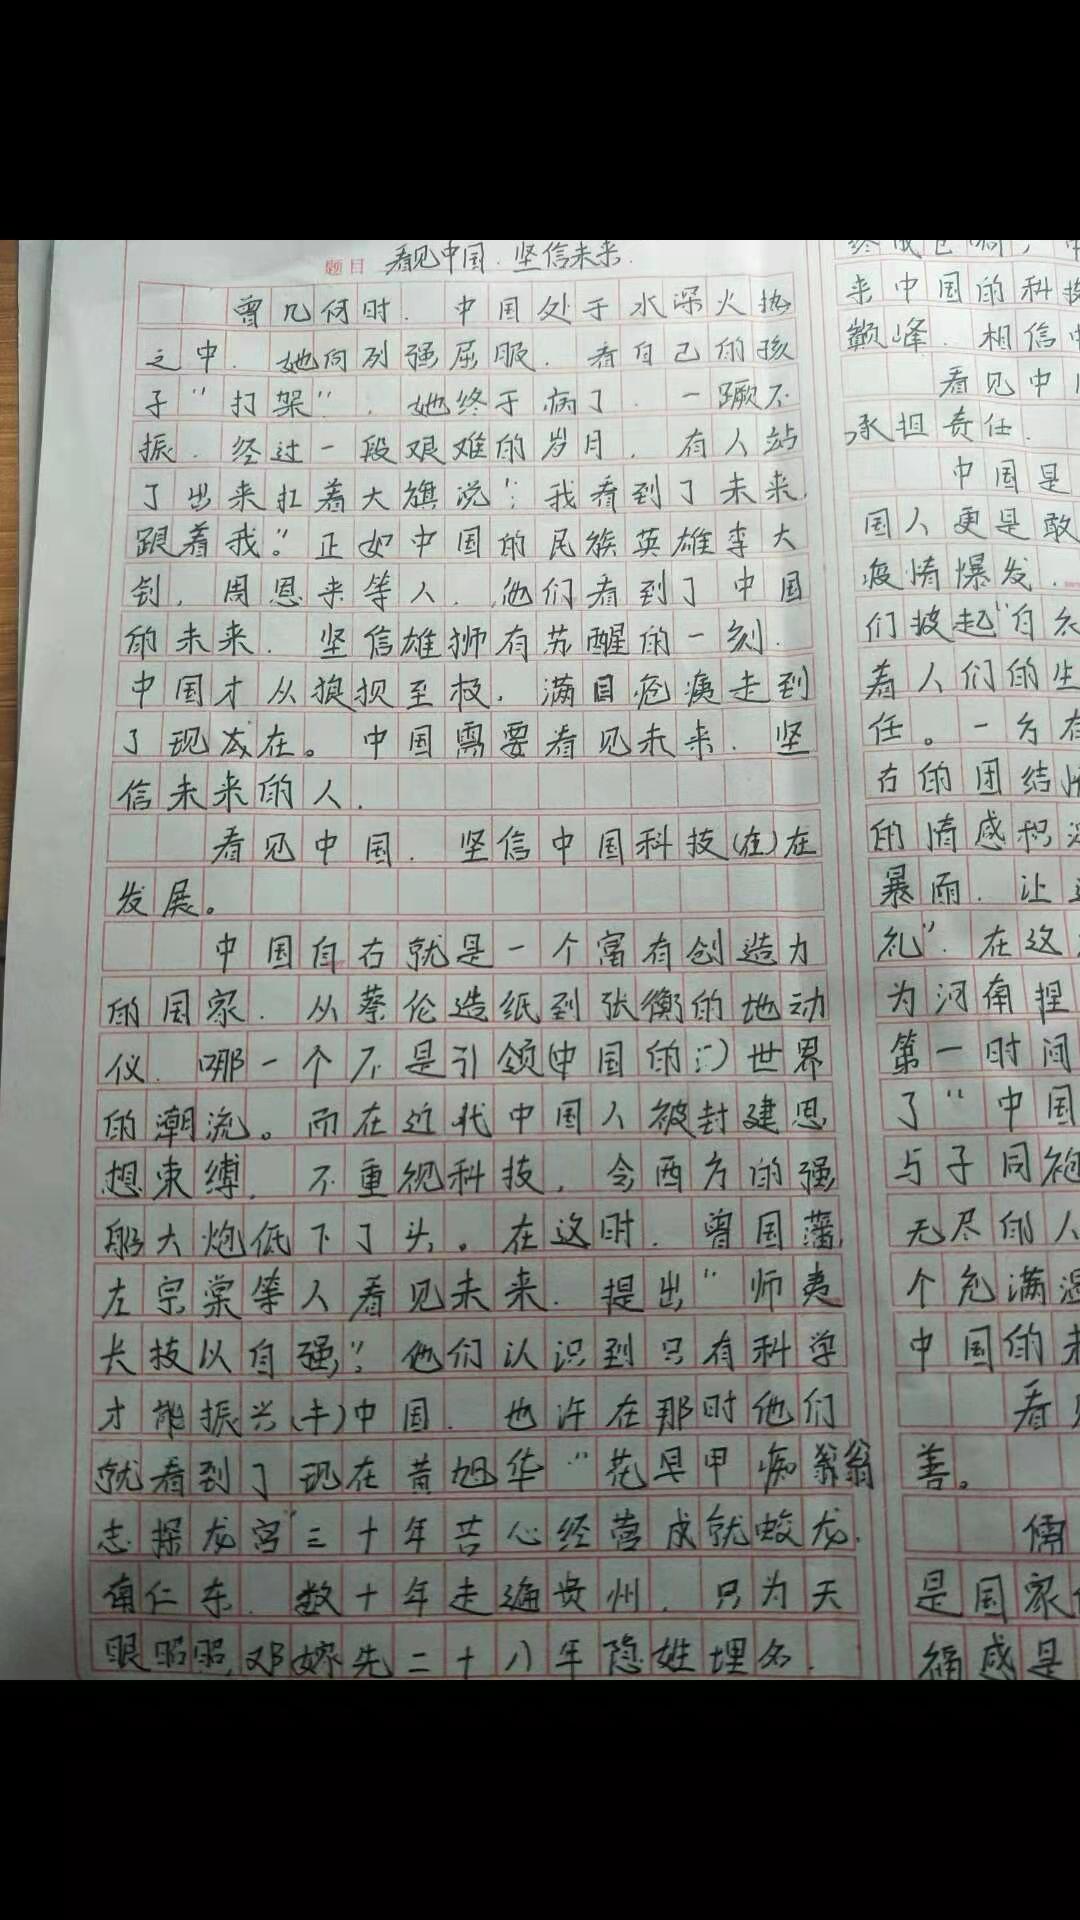 题目 看见中国.坚信未来.
曾几何时.中国处于水深火热
之中.她向列强屈服.看自己的孩
子“打架”.她终于病了.一蹶不
振.经过一段艰难的岁月.有人站
了出来扛着大旗说“:我看到了未来.
跟着我。”正如中国的民族英雄李大
钊.周恩来等人.他们看到了中国
的未来.坚信雄狮有苏醒的一刻.
中国才从损至极.满目疮痍走到
了现在。中国需要看见未来.坚
信未来的人.
看见中国.坚信中国科技(在)在
发展。
中国自古就是一个富有创造力
的国家.从蔡伦造纸到张衡的地动
仪.哪一个不是引领(中国的:)世界
的潮流。而在近代中国人被封建思
想束缚.不重视科技.令西方的强
船大炮低下了头。在这时.曾国藩
左宗棠等人看见未来.提出“师夷
长技以自强”;他们认识到只有科学
才能振兴(丰)中国.也许在那时他们
就看到了现在黄旭华“花甲痴翁
志探龙宫”三十年苦心经营成就蛟龙.
南仁东.数十年走遍贵州.只为天
眼昭昭,邓嫁先二十八年隐姓埋名.
来中国的科技
巅峰.相信中
看见中国
承担责任.
中国是
国人更是敢
疫情爆发.
们披起“白衣
着人们的生
任。一方有
右的团结情
的情感积淀
暴雨.让这
礼”.在这
为河南捏
第一时间
了“中国
与子同袍
无尽的人
个充满温
中国的未
看见
善。
儒
是国家
福感是